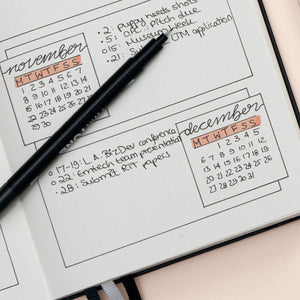 november
M T W T F S S
1 2 3 4 5 6 7
8 9 10 11 12 13 14
15 16 17 18 19 20 21
22 23 24 25 26 27 28
29 30
• 2: puppy needs shots
• 5: pitch due
• 15: Museum Week
• 21: Submit UTM application
december
M T W T F S S
1 2 3 4 5
6 7 8 9 10 11 12
13 14 15 16 17 18 19
20 21 22 23 24 25 26
27 28 29 30 31
• 17-19: L.A. BizDev conference
• 22: Emtech team presentation
• 28: Submit papers